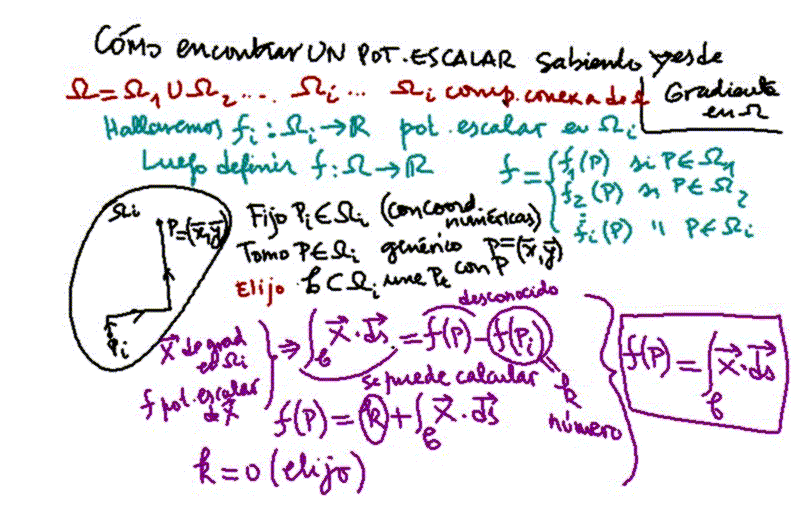 CÓMO encontrar UN POT. ESCALAR sabiendo X es de
Gradiente en Ω
Ω = Ω₁ ∪ Ω₂ ... Ωi ... Ωi comp. conexa de Ω
Hallaremos fi : Ωi → ℝ pot. escalar en Ωi
Luego definir f : Ω → ℝ
f = { f₁(P) si P ∈ Ω₁
f₂(P) si P ∈ Ω₂
⋮
fi(P) " P ∈ Ωi
Ωi
P = (x̄, ȳ)
Pi
Fijo Pi ∈ Ωi (con coord. numéricas)
Tomo P ∈ Ωi genérico P = (x̄, ȳ)
Elijo ℓ ⊂ Ωi une Pi con P
desconocido
X⃗ de grad en Ωi
f pot. escalar de X⃗
} ⇒ ∫_ℓ X⃗ · ds⃗ = f(P) - f(Pi)
se puede calcular
k
número
f(P) = k + ∫_ℓ X⃗ · ds⃗
k = 0 (elijo)
f(P) = ∫_ℓ X⃗ · ds⃗